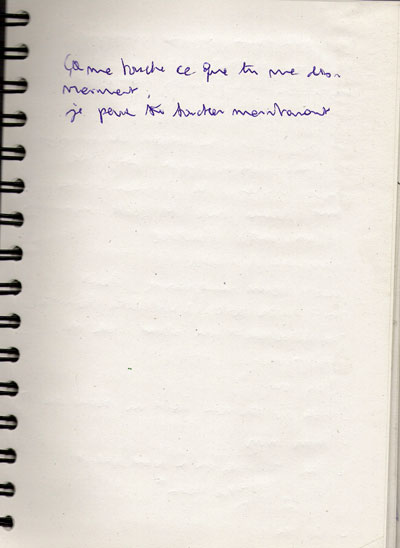 Ça me touche ce que tu me dis.
vraiment,
je peux te toucher maintenant